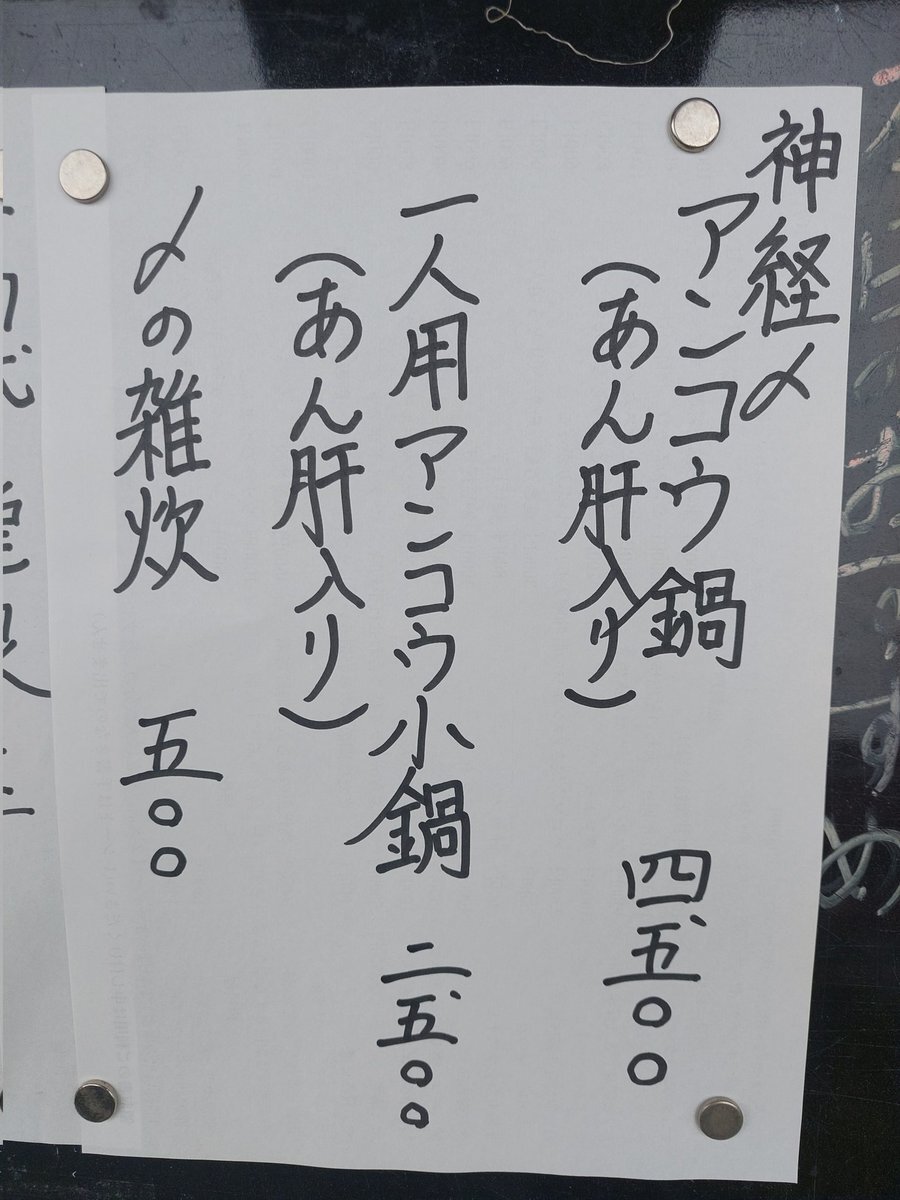 神経〆
アンコウ鍋
(あん肝入り) 四、五〇〇
一人用アンコウ小鍋 二、五〇〇
(あん肝入り)
〆の雑炊 五〇〇